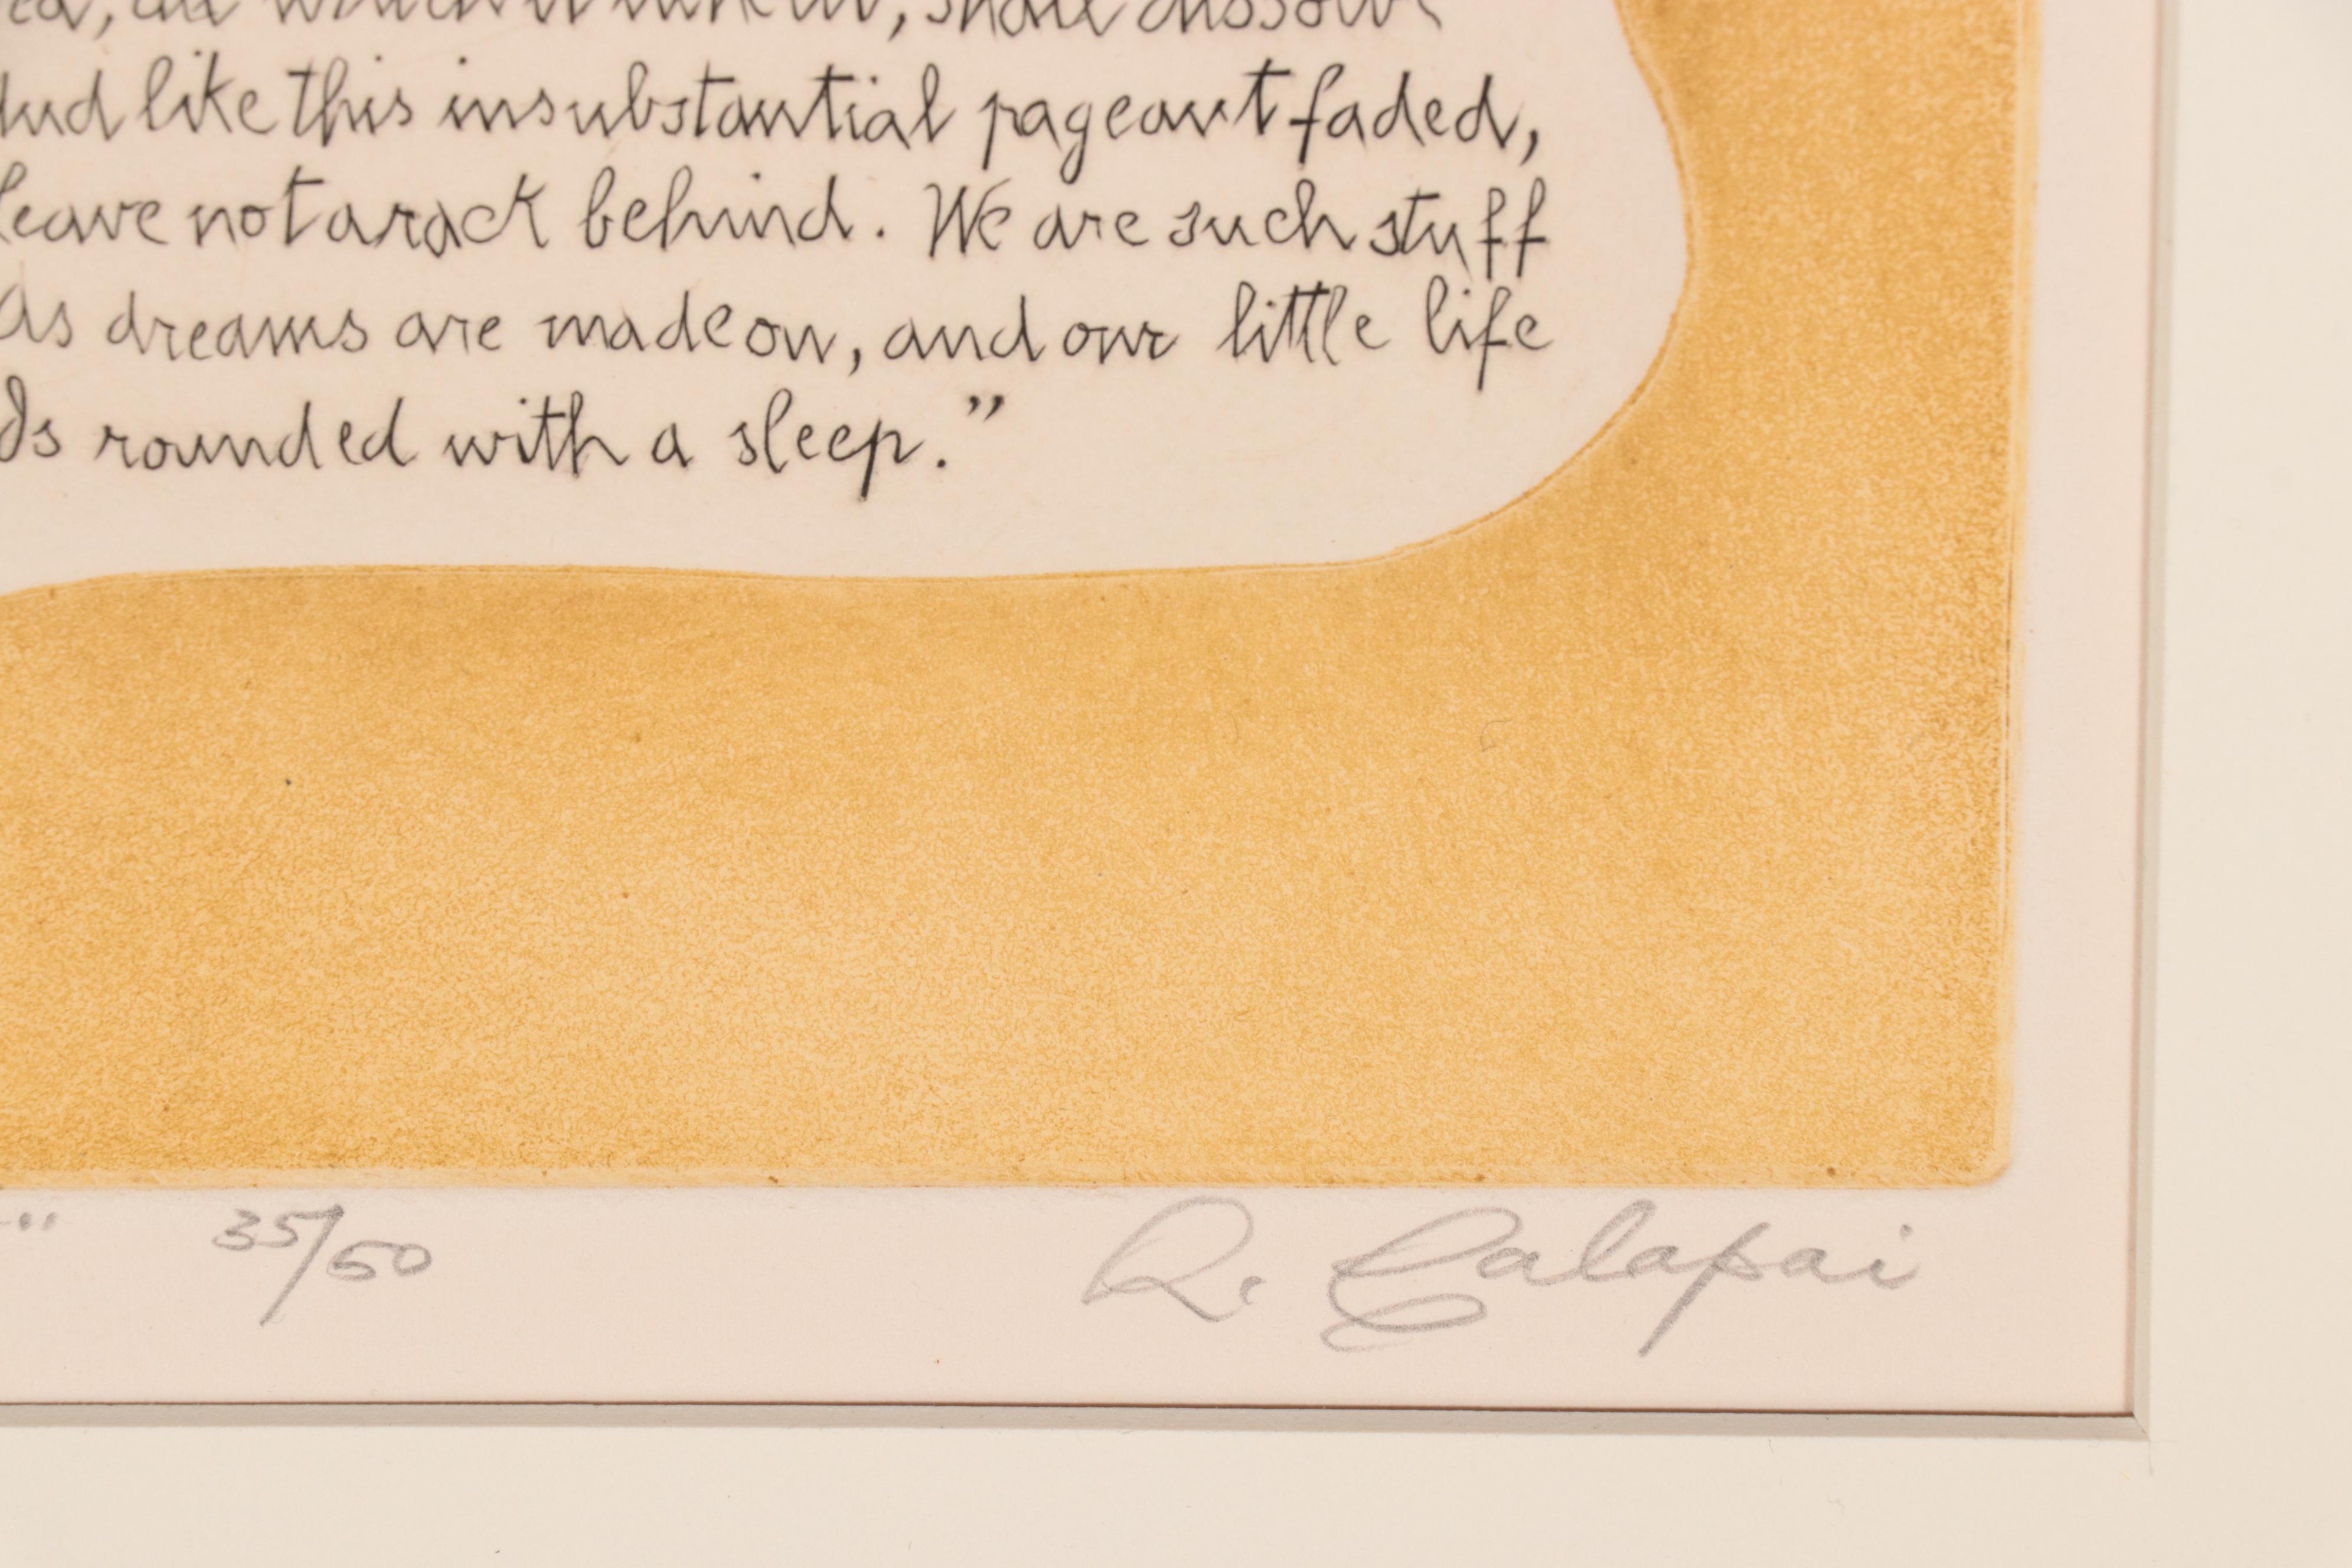 shall dissolve
And like this insubstantial pageant faded,
leave not a rack behind. We are such stuff
As dreams are made on, and our little life
Is rounded with a sleep."
" 35/50 R. Calapai